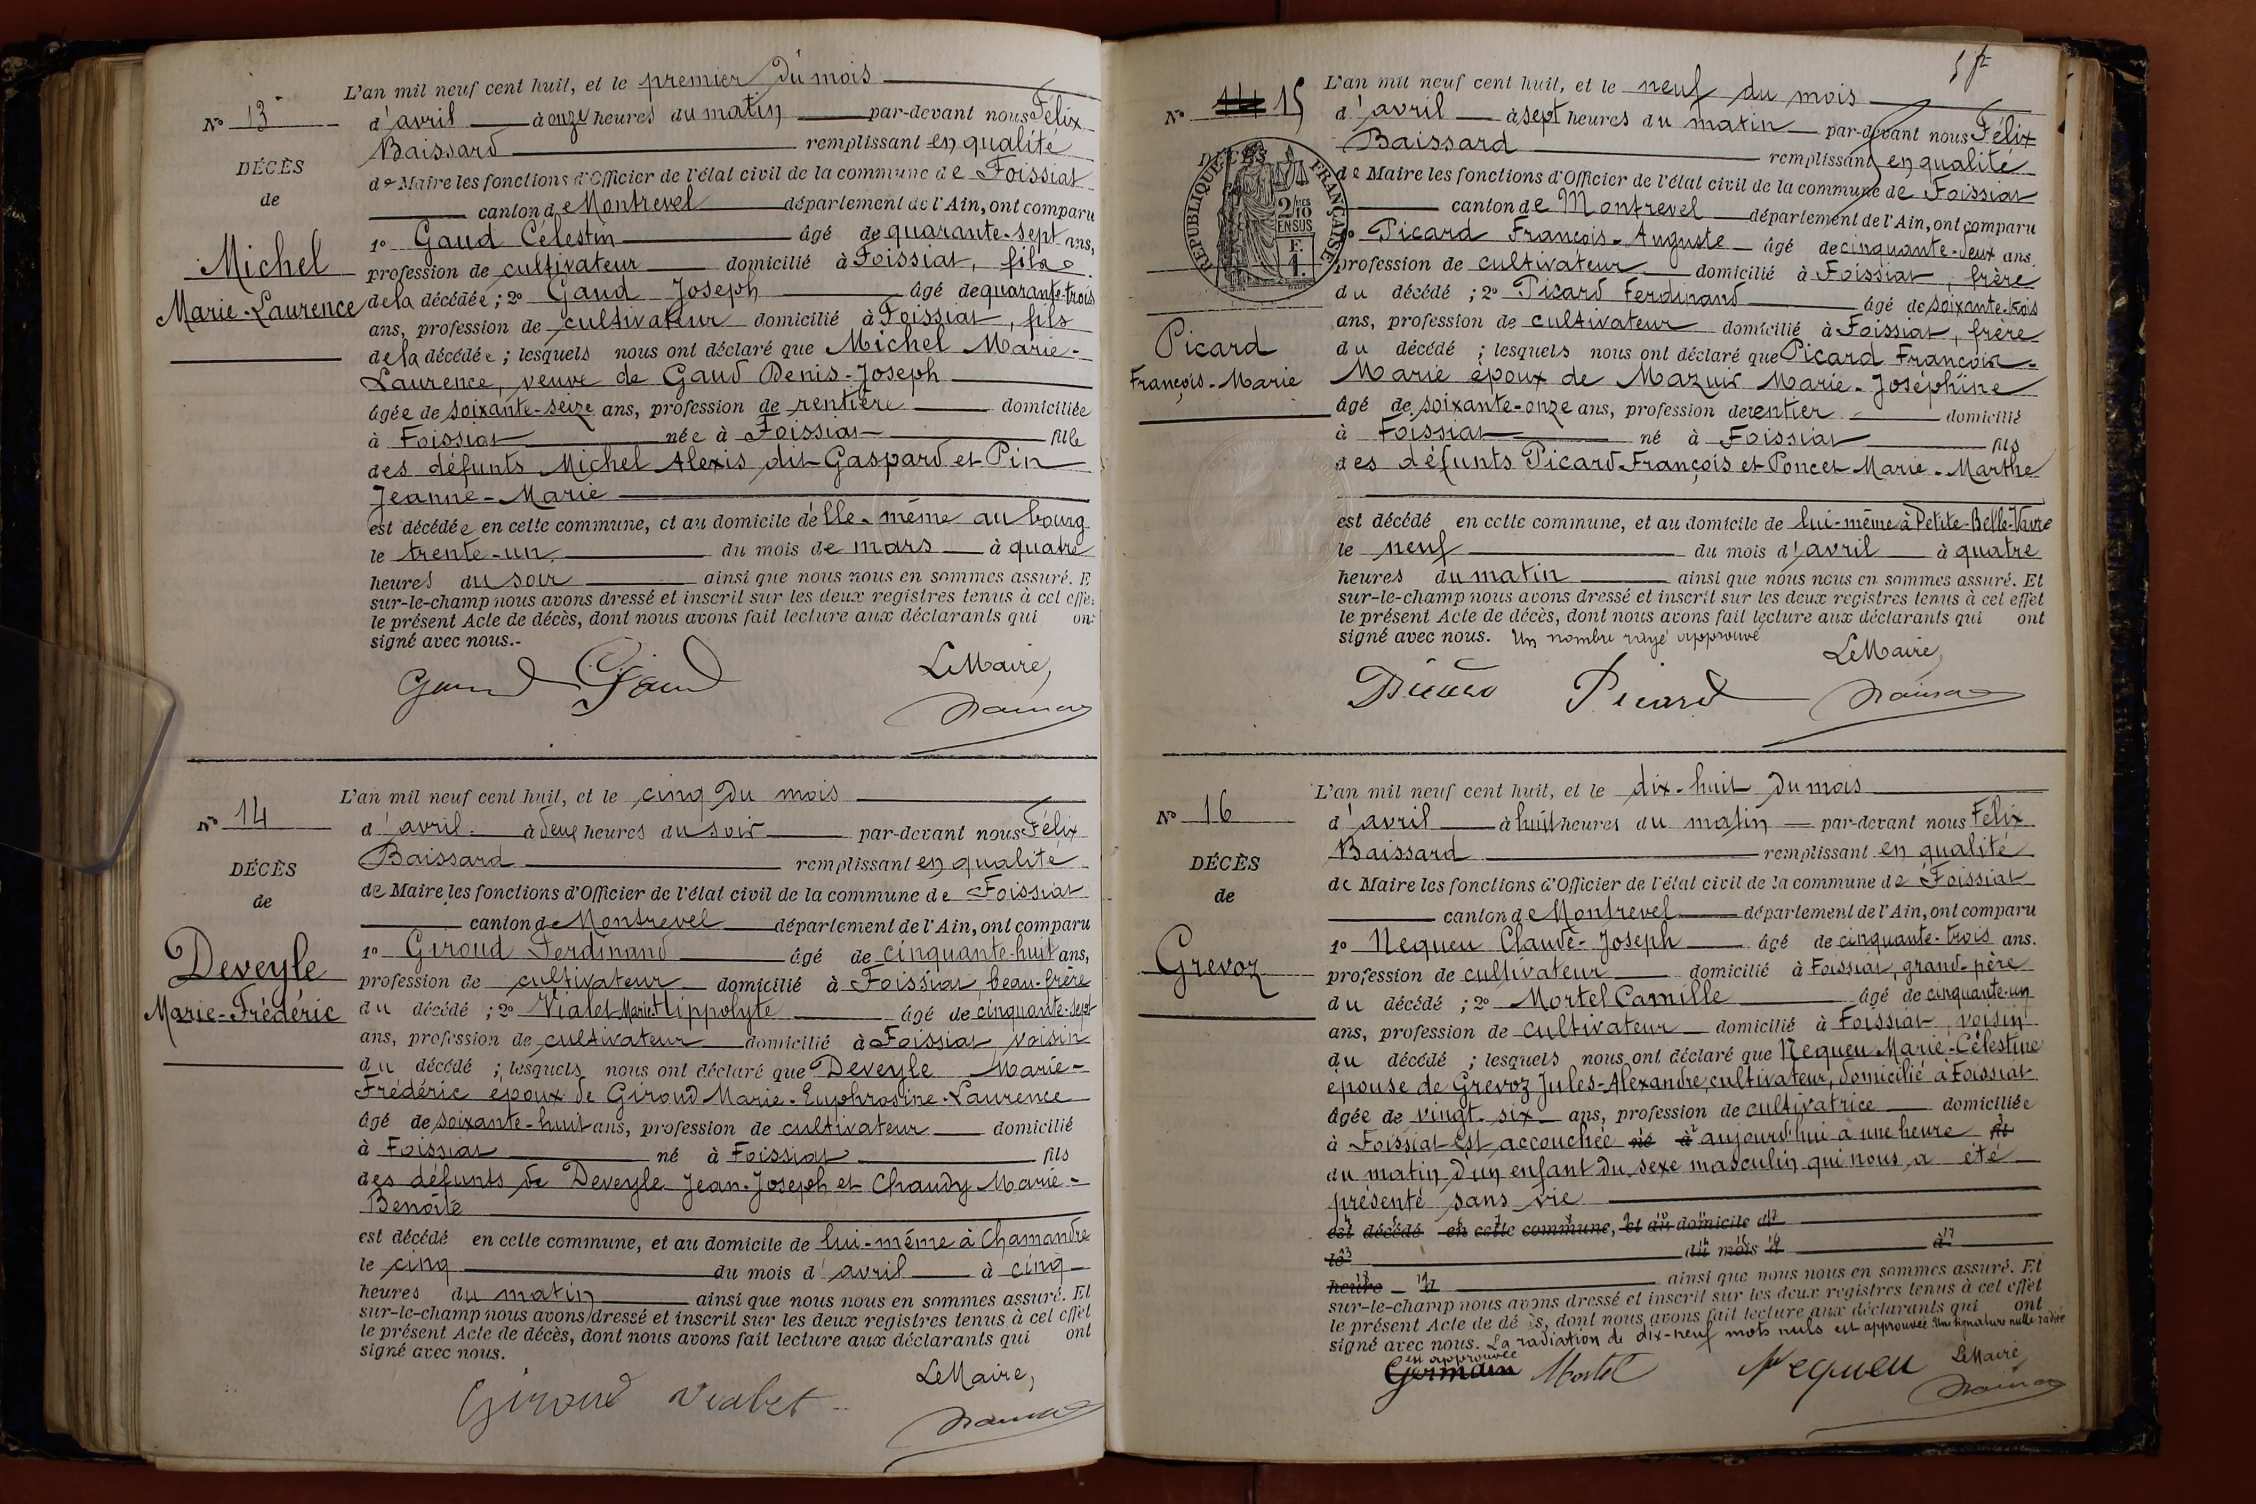 L'an mil neuf cent huit, et le premier du mois
No 13
d'avril à onze heures du matin par-devant nous Félix
Baissard remplissant en qualité
DÉCÈS
de Maire les fonctions d'Officier de l'état civil de la commune de Foissiat
de
canton de Montrevel département de l'Ain, ont comparu
1o Gaud Célestin âgé de quarante-sept ans,
Michel
profession de cultivateur domicilié à Foissiat, fils
Marie-Laurence
de la décédée; 2o Gaud Joseph âgé de quarante-trois
ans, profession de cultivateur domicilié à Foissiat, fils
de la décédée; lesquels nous ont déclaré que Michel Marie-
Laurence, veuve de Gaud Denis-Joseph
âgée de soixante-seize ans, profession de rentière domiciliée
à Foissiat née à Foissiat fille
des défunts Michel Alexis dit Gaspard et Pin
Jeanne-Marie
est décédée en cette commune, et au domicile d'elle-même au bourg
le trente-un du mois de mars à quatre
heures du soir ainsi que nous nous en sommes assuré. E
sur-le-champ nous avons dressé et inscrit sur les deux registres tenus à cet effe
le présent Acte de décès, dont nous avons fait lecture aux déclarants qui on
signé avec nous.-
Le Maire,
Gaud Gaud
L'an mil neuf cent huit, et le cinq du mois
No 14
d'avril à deux heures du soir par-devant nous Félix
Baissard remplissant en qualité
DÉCÈS
de Maire les fonctions d'Officier de l'état civil de la commune de Foissiat
de
canton de Montrevel département de l'Ain, ont comparu
1o Giroud Ferdinand âgé de cinquante-huit ans,
Deveyle
profession de cultivateur domicilié à Foissiat, beau-frère
Marie-Frédéric
du décédé; 2o Vialet Marie-Hippolyte âgé de cinquante-sept
ans, profession de cultivateur domicilié à Foissiat, voisin
du décédé; lesquels nous ont déclaré que Deveyle Marie-
Frédéric époux de Giroud Marie-Euphrosine-Laurence
âgé de soixante-huit ans, profession de cultivateur domicilié
à Foissiat né à Foissiat fils
des défunts de Deveyle Jean-Joseph et Chaudy Marie-
Benoîte
est décédé en cette commune, et au domicile de lui-même à Chamandre
le cinq du mois d'avril à cinq
heures du matin ainsi que nous nous en sommes assuré. Et
sur-le-champ nous avons dressé et inscrit sur les deux registres tenus à cet effet
le présent Acte de décès, dont nous avons fait lecture aux déclarants qui ont
signé avec nous.
Le Maire,
Giroud Vialet
L'an mil neuf cent huit, et le neuf du mois
No 14 15
d'avril à sept heures du matin par-devant nous Félix
Baissard remplissant en qualité
DÉCÈS
RÉPUBLIQUE FRANÇAISE
2/10 EN SUS
de Maire les fonctions d'Officier de l'état civil de la commune de Foissiat
canton de Montrevel département de l'Ain, ont comparu
1o Picard François-Auguste âgé de cinquante-deux ans.
profession de cultivateur domicilié à Foissiat, frère
du décédé; 2o Picard Ferdinand âgé de soixante-trois
ans, profession de cultivateur domicilié à Foissiat, frère
Picard
du décédé; lesquels nous ont déclaré que Picard François-
François-Marie
Marie époux de Mazuir Marie-Joséphine
âgé de soixante-onze ans, profession de rentier domicilié
à Foissiat né à Foissiat fils
des défunts Picard François et Poncet Marie-Marthe
est décédé en cette commune, et au domicile de lui-même à Petite-Belle-Vavre
le neuf du mois d'avril à quatre
heures du matin ainsi que nous nous en sommes assuré. Et
sur-le-champ nous avons dressé et inscrit sur les deux registres tenus à cet effet
le présent Acte de décès, dont nous avons fait lecture aux déclarants qui ont
signé avec nous. Un nombre rayé approuvé
Le Maire,
Picard Picard
L'an mil neuf cent huit, et le dix-huit du mois
No 16
d'avril à huit heures du matin par-devant nous Félix
Baissard remplissant en qualité
DÉCÈS
de Maire les fonctions d'Officier de l'état civil de la commune de Foissiat
de
canton de Montrevel département de l'Ain, ont comparu
1o Nequeu Claude-Joseph âgé de cinquante-trois ans.
Grevoz
profession de cultivateur domicilié à Foissiat, grand-père
du décédé; 2o Mortel Camille âgé de cinquante-un
ans, profession de cultivateur domicilié à Foissiat, voisin
du décédé; lesquels nous ont déclaré que Nequeu Marie-Célestine
épouse de Grevoz Jules-Alexandre, cultivateur, domicilié à Foissiat
âgée de vingt-six ans, profession de cultivatrice domiciliée
à Foissiat est accouchée né à aujourd'hui à une heure fils
du matin d'un enfant du sexe masculin qui nous a été
présenté sans vie
est décédé en cette commune, et au domicile d
le du mois d à
heure d ainsi que nous nous en sommes assuré. Et
sur-le-champ nous avons dressé et inscrit sur les deux registres tenus à cet effet
le présent Acte de décès, dont nous avons fait lecture aux déclarants qui ont
signé avec nous. La radiation de dix-neuf mots nuls est approuvée Une signature nulle radiée
est approuvée
Le Maire,
Germain Mortel Nequeu